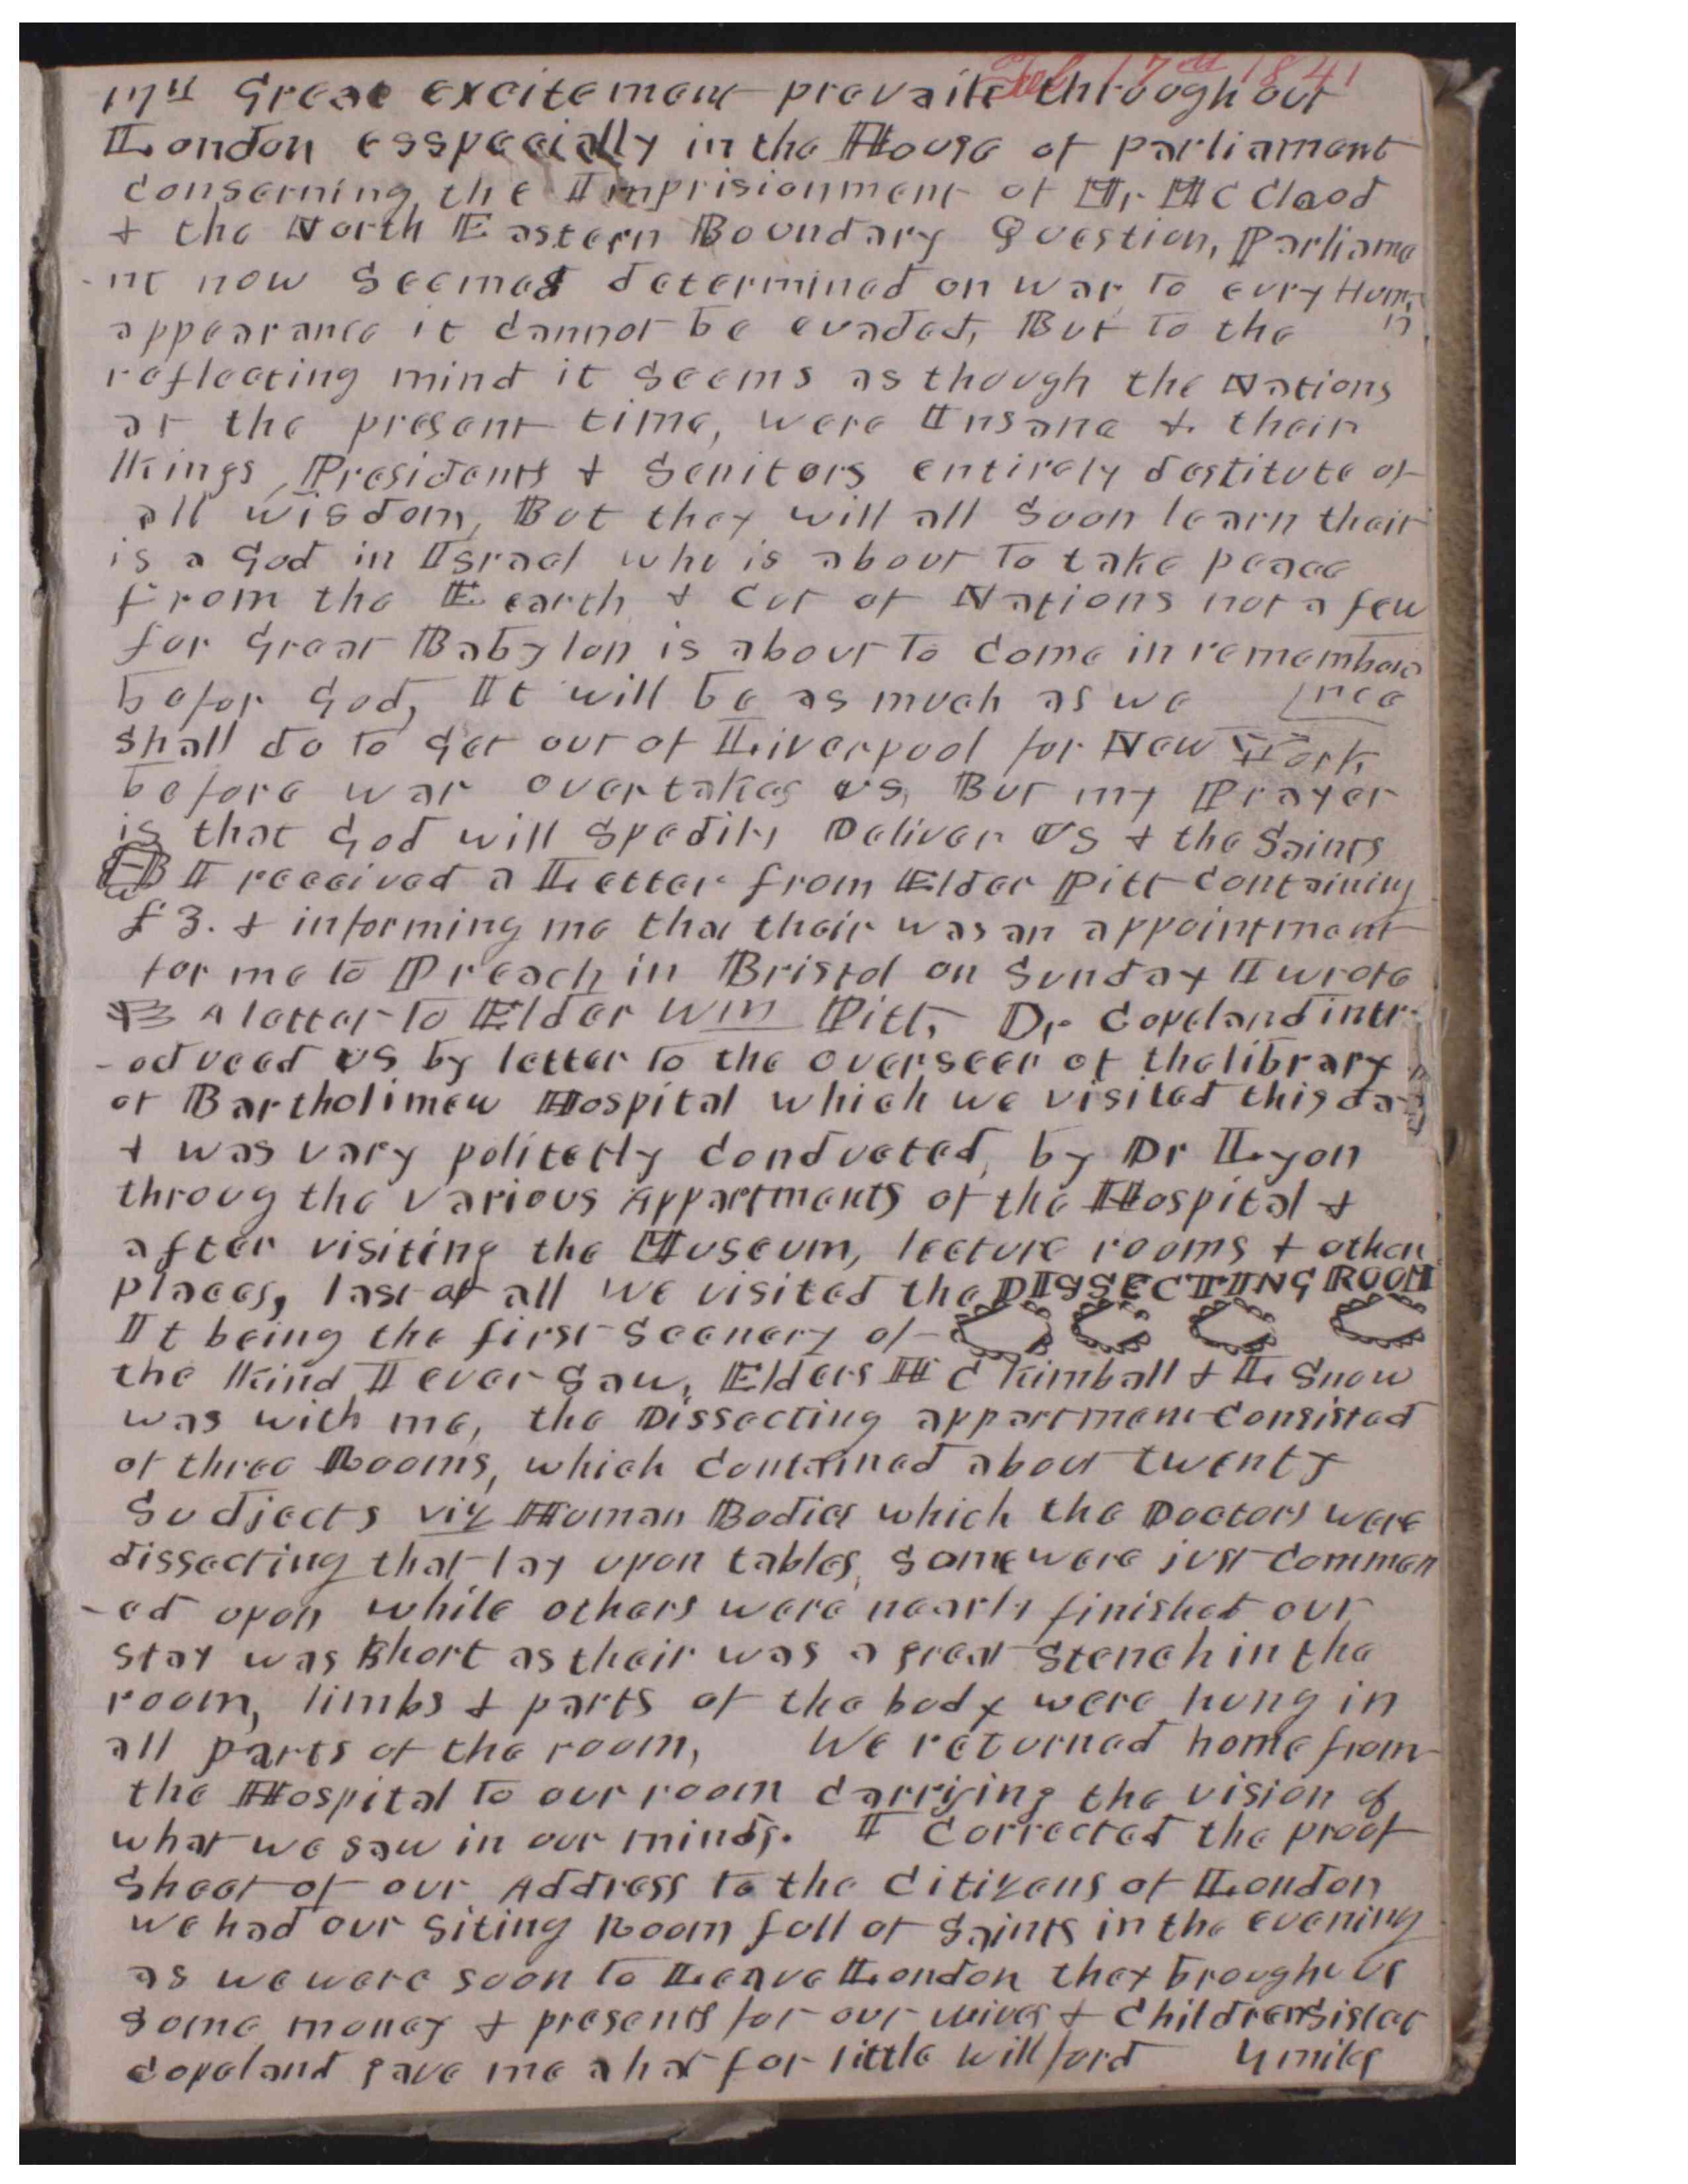 Feb 17th 1841
17th Great excitement prevails throughout
London esspecially in the House of parliament
conserning the Imprisionment of Mr McClaod
& the North Eastern Boundary Question, Parliame
-nt now seemes determined on war to evry Human
appearance it cannot be evaded, But to the
reflecting mind it seems as though the Nations
at the present time, were Insane & their
Kings, Presidents & Senitors entirely destitute of
all wisdom, But they will all soon learn their
is a God in Israel who is about to take peace
from the Eearth & Cut of Nations not a few
for Great Babylon is about to come in remembra
befor God, It will be as much as we nce
shall do to get out of Liverpool for New York
before war overtakes us, But my Prayer
is that God will spedily Deliver us & the Saints
I received a Letter from Elder Pitt containing
£3. & informing me that their was an appointment
for me to Preach in Bristol on Sunday I wrote
A letter to Elder Wm Pitt, Dr Copeland intr-
-oduced us by letter to the overseer of the library
of Bartholimew Hospital which we visited this day
& was vary politetly conducted, by Dr Lyon
throug the various Appartments of the Hospital &
after visiting the Museum, lecture rooms & other
places, last of all we visited the DISSECTIING ROOM
It being the first Scenery of
the Kind I ever Saw, Elders H C Kimball & L Snow
was with me, the Dissecting appartment Consisted
of three Rooms, which contained about twenty
Sudjects viz Human Bodies which the Doctors were
dissecting that lay upon tables, some were just commen
-ed upon while others were nearly finished our
stay was short as their was a great stench in the
room, limbs & parts of the body were hung in
all parts of the room, We returned home from
the Hospital to our room carrying the vision of
what we saw in our minds. I corrected the proof
sheet of our Address to the Citizens of London
we had our siting Room full of Saints in the evening
as we were soon to Leave London they brought us
some money & presents for our wives & Children Sister
Copeland gave me a hat for little willford 4 miles